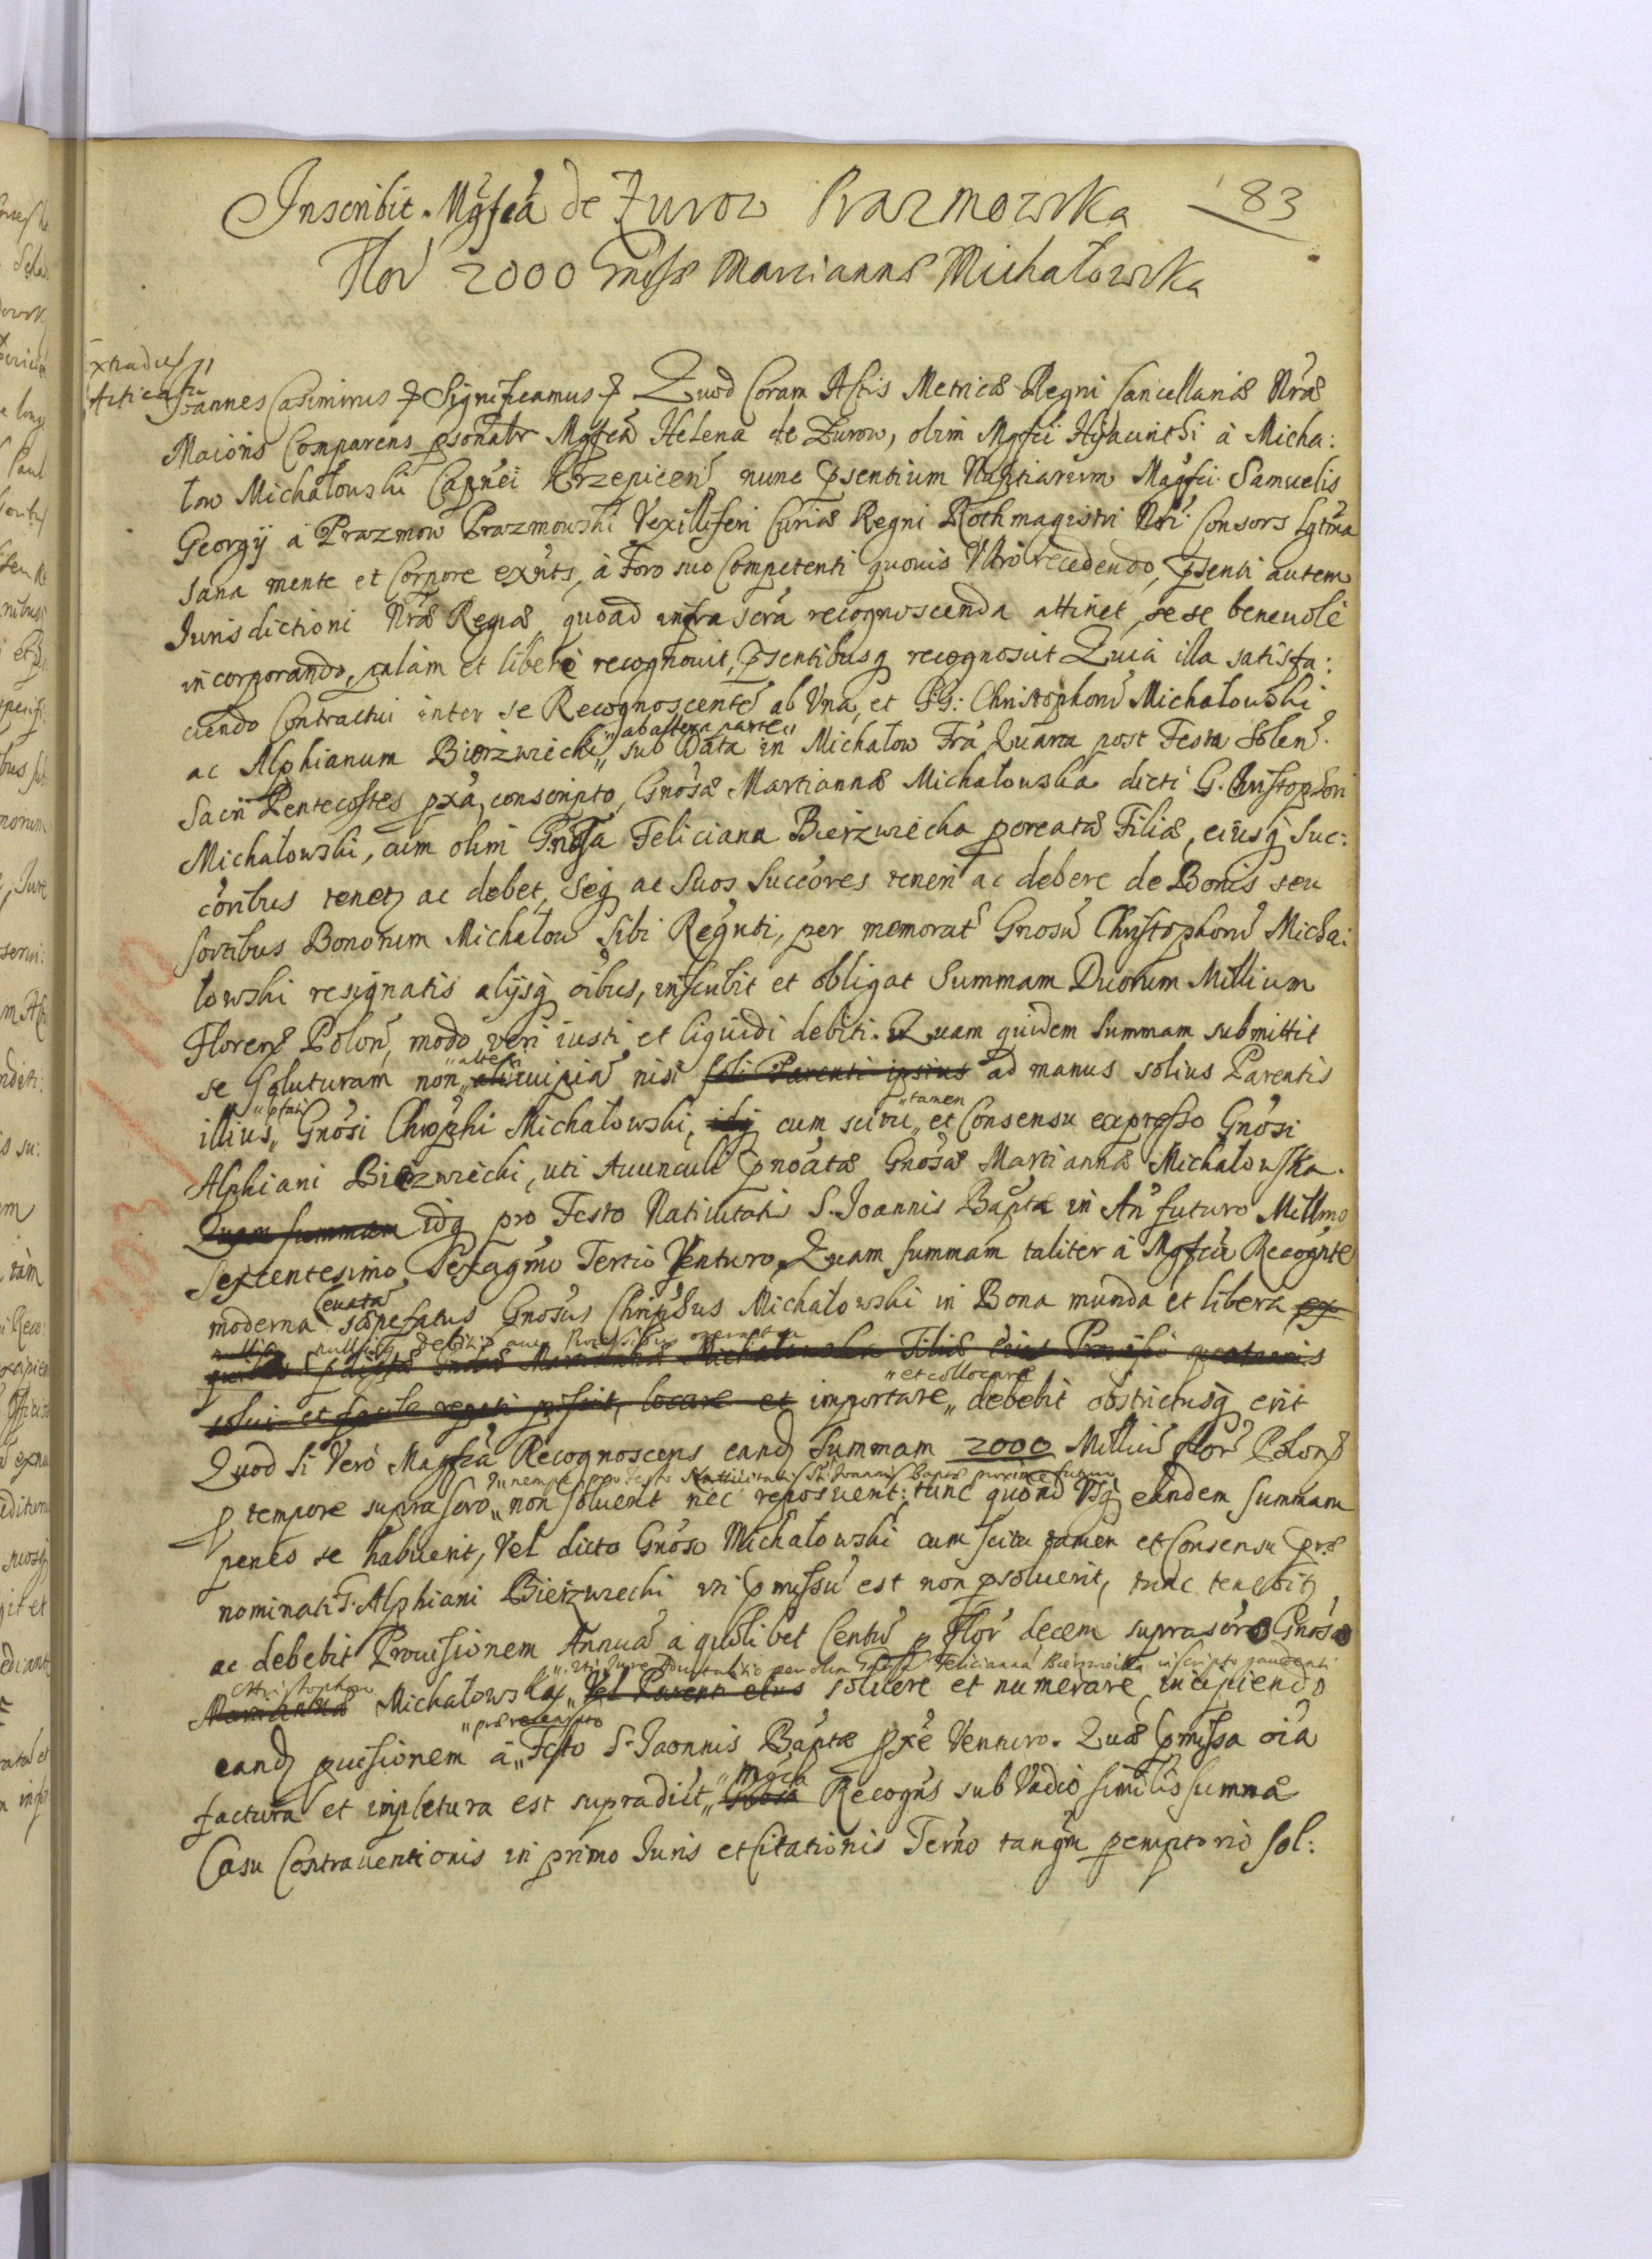 83
Inscribit Mgfca de Zurow Prazmowska
Flor 2000 Gnosae Mariannae Michałowska
Extradus
Acticatu
Joannes Casimirus & Significamus & Quod Coram Actis Metricae Regni Cancellariae Nrae
Maioris Comparens psonalr Mgfca Helena de Zurow, olim Mgfci Hyacinthi à Micha:
low Michałowski Capnei Krzepicen nunc psentium Nuptiarum Magfci Samuelis
Georgij à Prazmow Prazmowski Vexilliferi Curiae Regni Rothmagistri Nri Consors lgtma
sana mente et Corpore exnts, à Foro suo Competenti quovis Vtro recedendo, psenti autem
Jurisdictioni Nrae Regiae, quoad infra scra recognoscenda attinet, se se benevolè
incorporando, palàm et liberè recognovit, psentibusq recognoscit Quia illa satisfa:
ciendo Contractui inter se Recognoscente ab Vna, et GG: Christophoru Michałowski
ac Alphianum Bierzwiecki „ab altera parte„ sub Data in Michalow Fra Quarta post Festa Solen
Sacri Pentecostes pxa, conscripto, Gnosae Martiannae Michałowska dicti G. Christophori
Michałowski, cum olim Gnosa Feliciana Bierzwiecka pcreatae Filiae, eiusq Suc:
coribus tenetz ac debet, Seq ac Suos Succores teneri ac debere de Bonis seu
sortibus Bonorum Michałow Sibi Regnti, per memorat Gnosu Christophoru Micha:
lowski resignatis alijsq oibus, inscribit et obligat Summam Duorum Millium
Floren Polon, modo veri iusti et liquidi debiti. Quam quidem Summam submittit
se Soluturam non „alteri alicuipia nisi soli Parenti ipsius ad manus solius Parentis
illius „ptati Gnosi Chrophi Michałowski, idq cum scitu „tamen et Consensu expresso Gnosi
Alphiani Bierzwiecki, uti Avunculi pnoatae Gnosae Martiannae Michałowska.
Quam summam idq pro Festo Nativitatis S. Joannis Baptae in An futuro Millmo
Sexcentesimo Sexagmo Tertio Venturo, Quam summam taliter à Mgfca Recognte
moderna levata saepefatus Gnosus Chriphus Michałowski in Bona munda et libera ex
nullis nullisq debitis aut Processibus onerata
solui et facile regeri possint, locare et importare „et collocare debebit obstrictusq erit
Quod Si Verò Magfca Recognoscens eandz Summam 2000 Milliu flor Polon
p tempore supra scro „nempe pro Festo Nativitatis Sti Joannis Baptae proxime futuro non soluerit nec reposuerit: tunc quond Vsq eandem summam
penes se habuerit, Vel dicto Gnoso Michałowski cum scitu tamen et Consensu prae
nominati G. Alphiani Bierzwiecki uti pmissu est non psoluerit, tunc tenebitz
ac debebit Provisionem Annua à quolibet Centu p Flor decem suprascro Gnoso
Mariannae Christophoro Michałowski, „uti Jure Advitalitio per olim Gnosa Felicianna Bierzwiecka inscripto gaudenti Vel Parenti eius soluere et numerare, incipiendo
eandz puisionem à „praerecensito Festo S. Joannis Baptae pxe Venturo. Quae pmissa oia
factura et impletura est supradict „Mgfca Gnosa Recogns sub Vadio similis summae
Casu Contraventionis in primo Juris et Citationis Termo tanqm pemptorio sol: